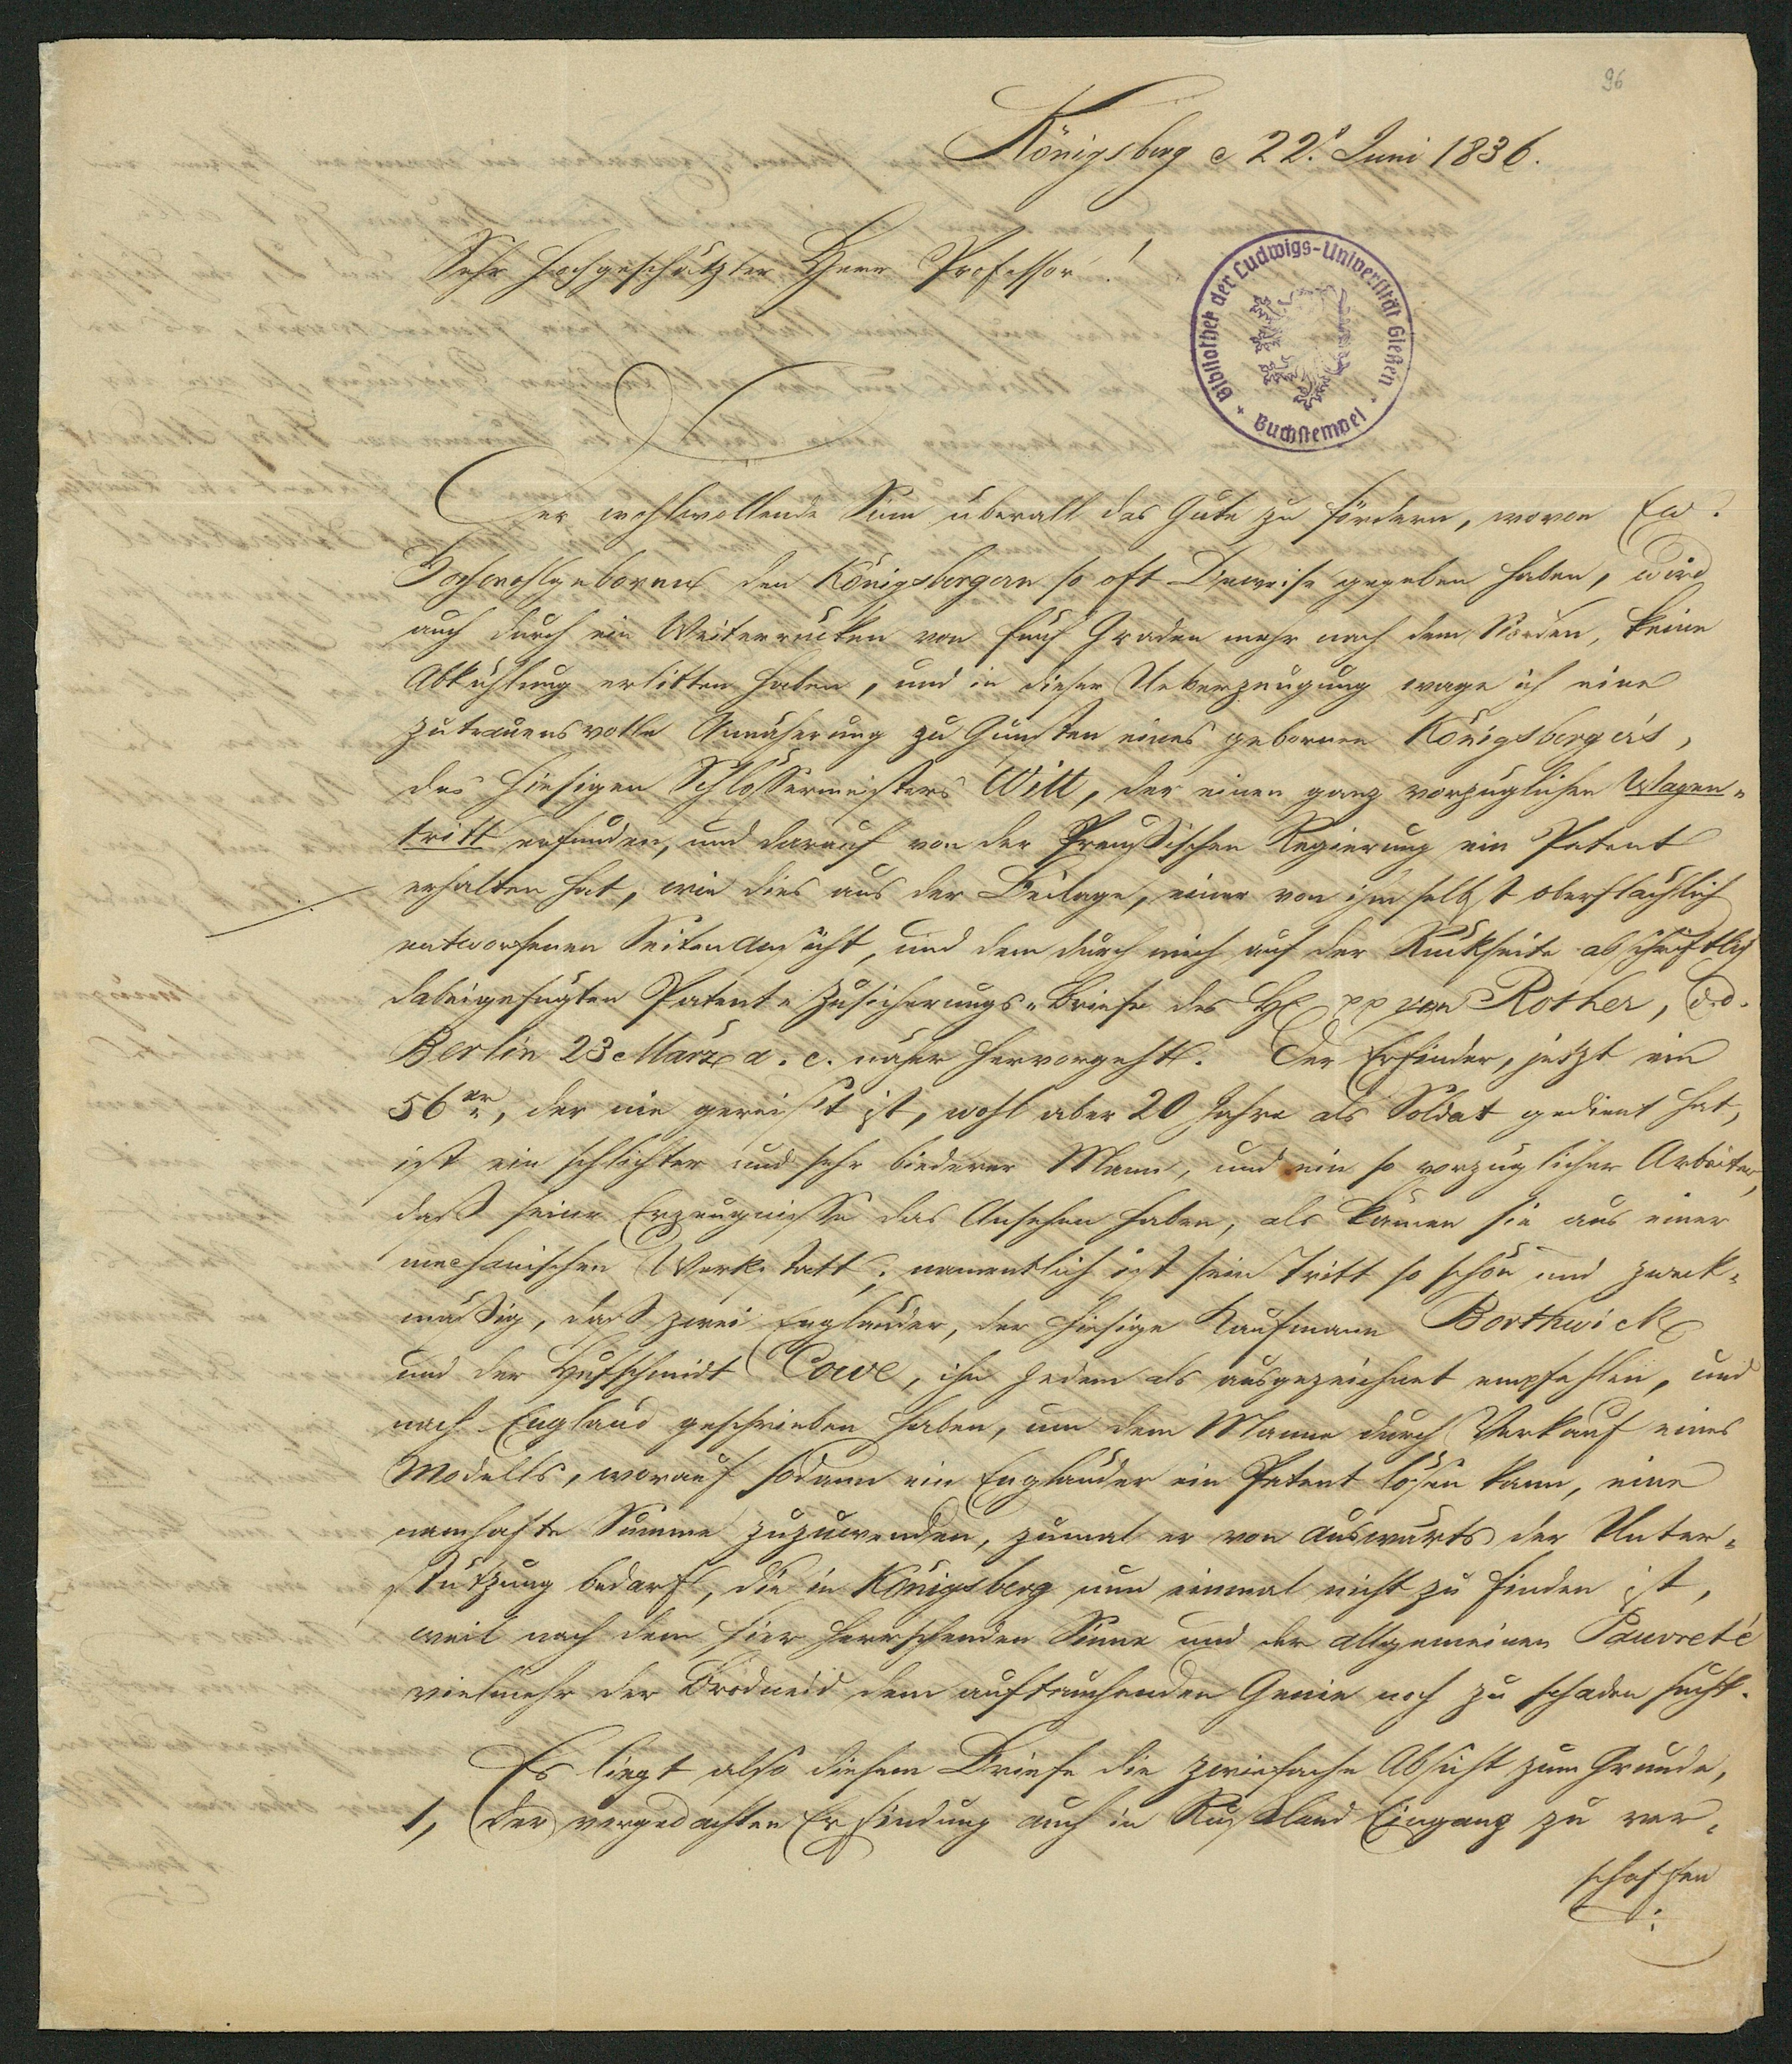 96
Königsberg d 22. Juni 1836.
Sehr hochgeschätzter Herr Professor!
Bibliothek der Ludwigs-Universität Gießen
Buchstempel
Der wohlwollende Sinn überall das Gute zu fördern, wovon Ew.
Hochwohlgeboren den Königsbergern so oft Beweise gegeben haben, wird
auch durch ein Weiterrücken von fünf Graden mehr nach dem Norden, keine
Abkühlung erlitten haben, und in dieser Ueberzeugung wage ich eine
zutrauensvolle Annäherung zu Gunsten eines gebornen Königsberger's,
des hiesigen Schlossermeisters Witt, der einen ganz vorzüglichen Wagen-
tritt erfunden, und darauf von der Preußischen Regierung ein Patent
erhalten hat, wie dies aus der Beilage, einer von ihm selbst oberflächlich
entworfenen Seitenansicht, und dem durch mich auf der Rückseite abschriftlich
dabeigefügten Patent-Zusicherungs-Briefe des H pp von Rother, d.d.
Berlin 23 März a. c. näher hervorgeht. Der Erfinder, jetzt ein
56er, der nie gereist ist, wohl aber 20 Jahre als Soldat gedient hat,
ist ein schlichter und sehr biederer Mann, und ein so vorzüglicher Arbeiter,
daß seine Erzeugnisse das Ansehen haben, als kämen sie aus einer
mechanischen Werkstatt; namentlich ist sein Tritt so schön und zweck-
mäßig, daß zwei Engländer, der hiesige Kaufmann Borthwick
und der Hufschmidt Cowe, ihn Jedem als ausgezeichnet empfehlen, und
nach England geschrieben haben, um dem Manne durch Verkauf eines
Modells, worauf sodann ein Engländer ein Patent lösen kann, eine
namhafte Summe zuzuwenden, zumal er von auswärts der Unter-
stützung bedarf, die in Königsberg nun einmal nicht zu finden ist,
weil nach dem hier herrschenden Sinne und der allgemeinen Pauvreté
vielmehr der Brodneid dem auftauchenden Genie noch zu schaden sucht.
Es liegt also diesem Briefe die zwiefache Absicht zum Grunde,
1, der vorgedachten Erfindung auch in Rußland Eingang zu ver-
schaffen